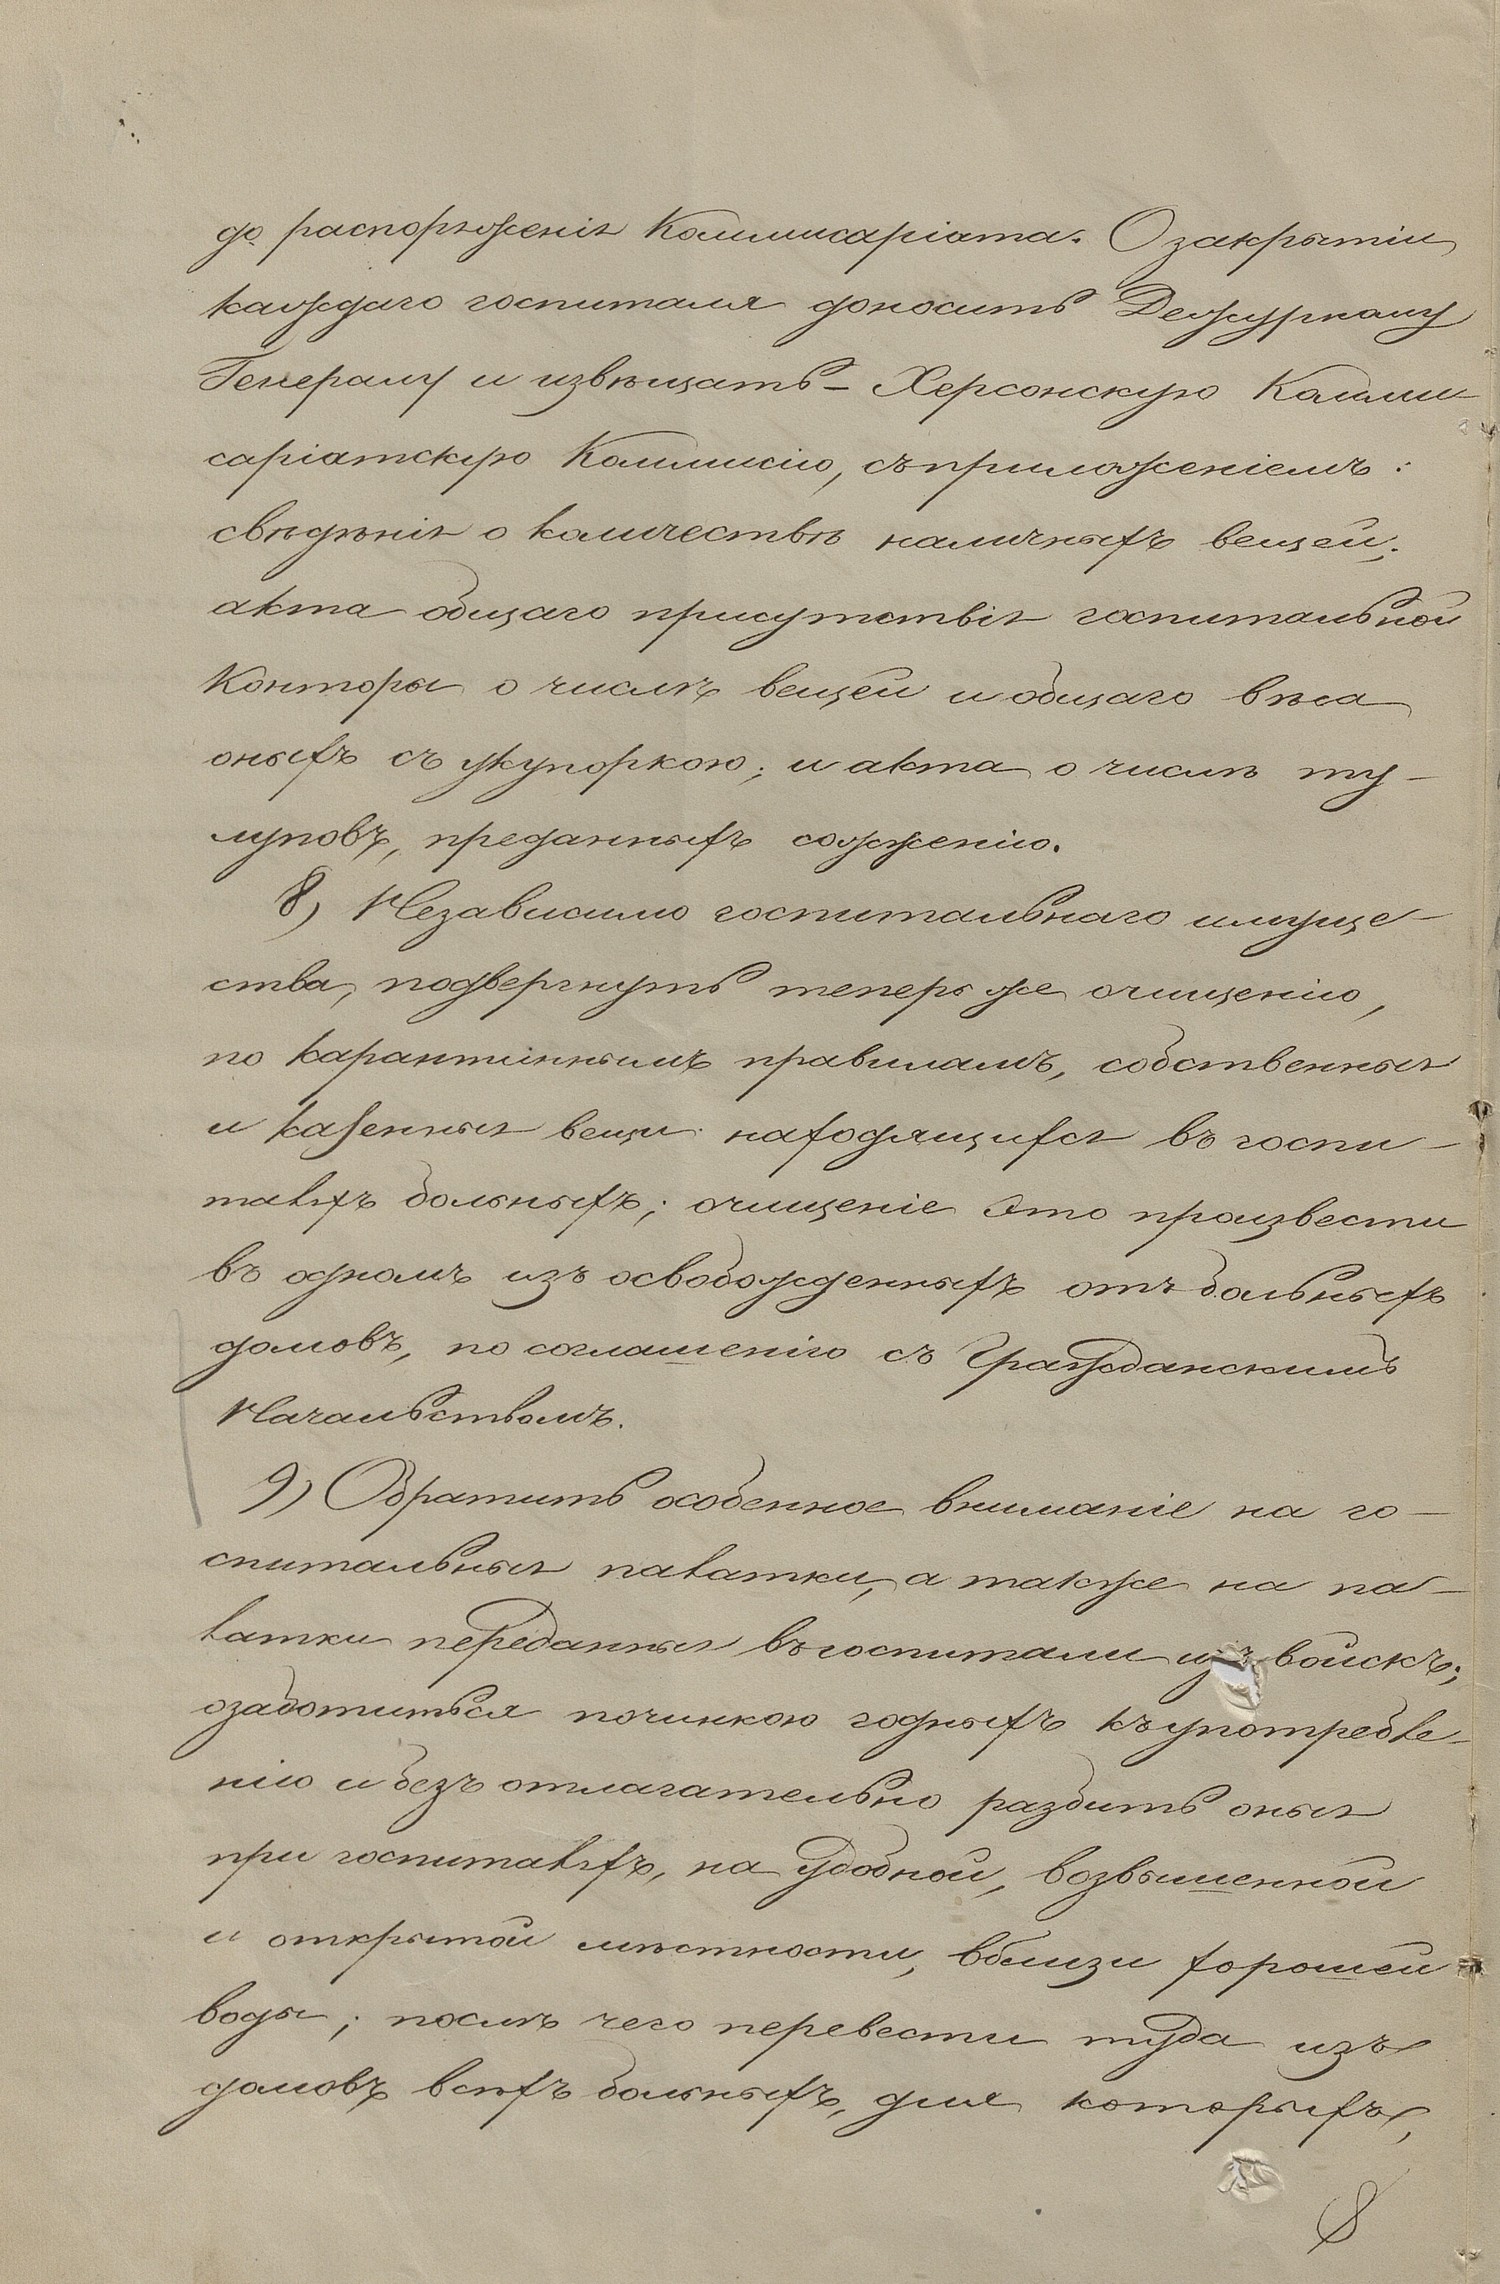 до распоряженія Коммисаріата. О закрытіи
каждаго госпиталя доносить Дежурному
Генералу и извѣщать – Херсонскую Комми-
саріатскую Коммисію, съ приложеніемъ:
свѣдѣнія о количествѣ наличныхъ вещей;
акта общаго присутствія госпитальной
Конторы о числѣ вещей и общаго вѣса
оныхъ съ укупоркою; и акта о числѣ ту-
луповъ, преданныхъ сожженію.
8) Независимо госпитальнаго имуще-
ства, подвергнуть теперь же очищенію,
по карантиннымъ правиламъ, собственныя
и казенныя вещи находящихся въ госпи-
таляхъ больныхъ; очищеніе это произвести
въ одномъ изъ освобожденныхъ отъ больныхъ
домовъ, по соглашенію съ Гражданскимъ
Начальствомъ.
9) Обратить особенное вниманіе на го-
спитальныя палатки, а также на па-
латки переданныя въ госпитали изъ войскъ;
озаботиться починкою годныхъ къ употребле-
нію и безъ отлагательно разбить оныя
при госпиталяхъ, на удобной, возвышенной
и открытой мѣстности, вблизи хорошей
воды; послѣ чего перевести туда изъ
домовъ всѣхъ больныхъ, для которыхъ,
8